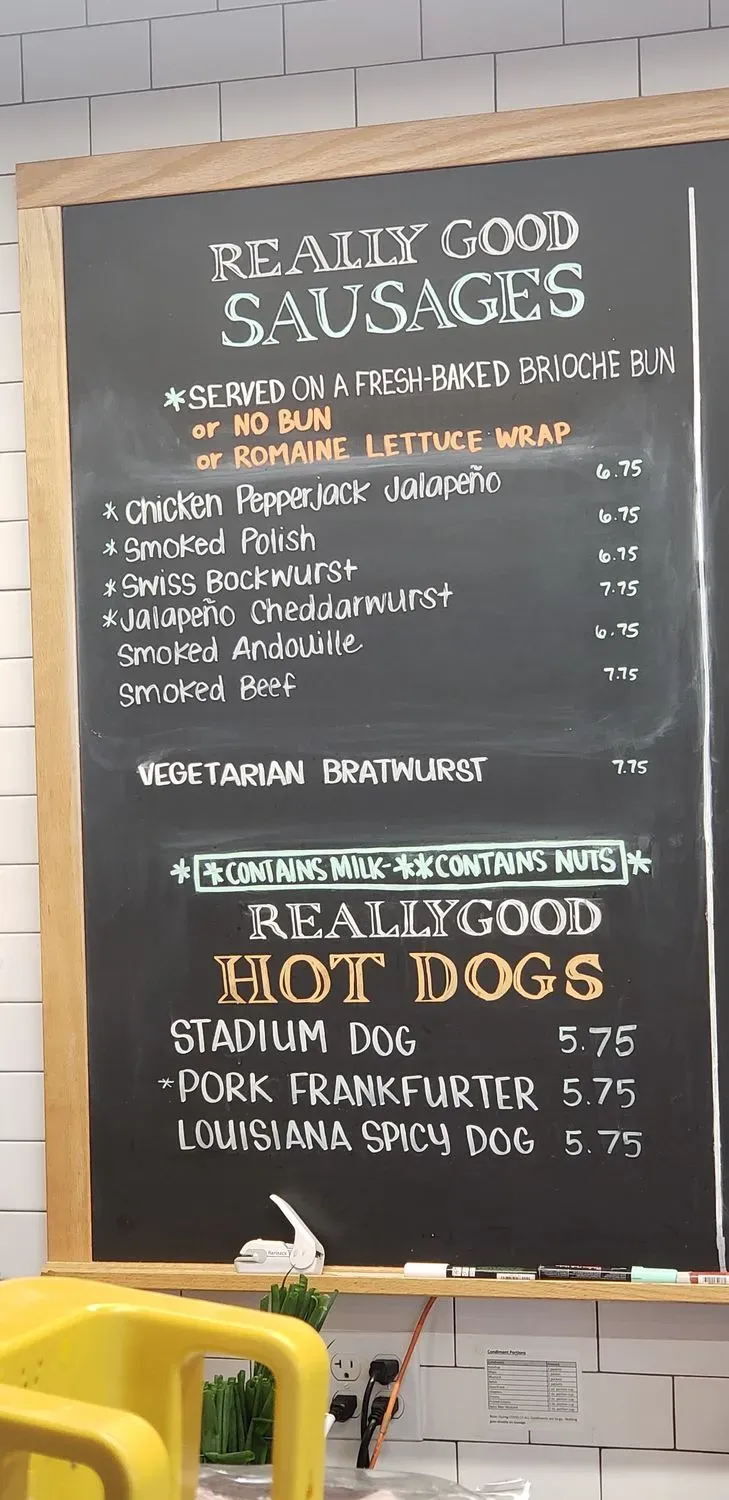 REALLY GOOD
SAUSAGES
*SERVED ON A FRESH-BAKED BRIOCHE BUN
or NO BUN
or ROMAINE LETTUCE WRAP
*Chicken Pepperjack Jalapeño 6.75
*Smoked Polish 6.75
*Swiss Bockwurst 6.75
*Jalapeño Cheddarwurst 7.75
Smoked Andouille 6.75
Smoked Beef 7.75
VEGETARIAN BRATWURST 7.75
* *CONTAINS MILK-**CONTAINS NUTS *
REALLY GOOD
HOT DOGS
STADIUM DOG 5.75
*PORK FRANKFURTER 5.75
LOUISIANA SPICY DOG 5.75
Condiment Portions